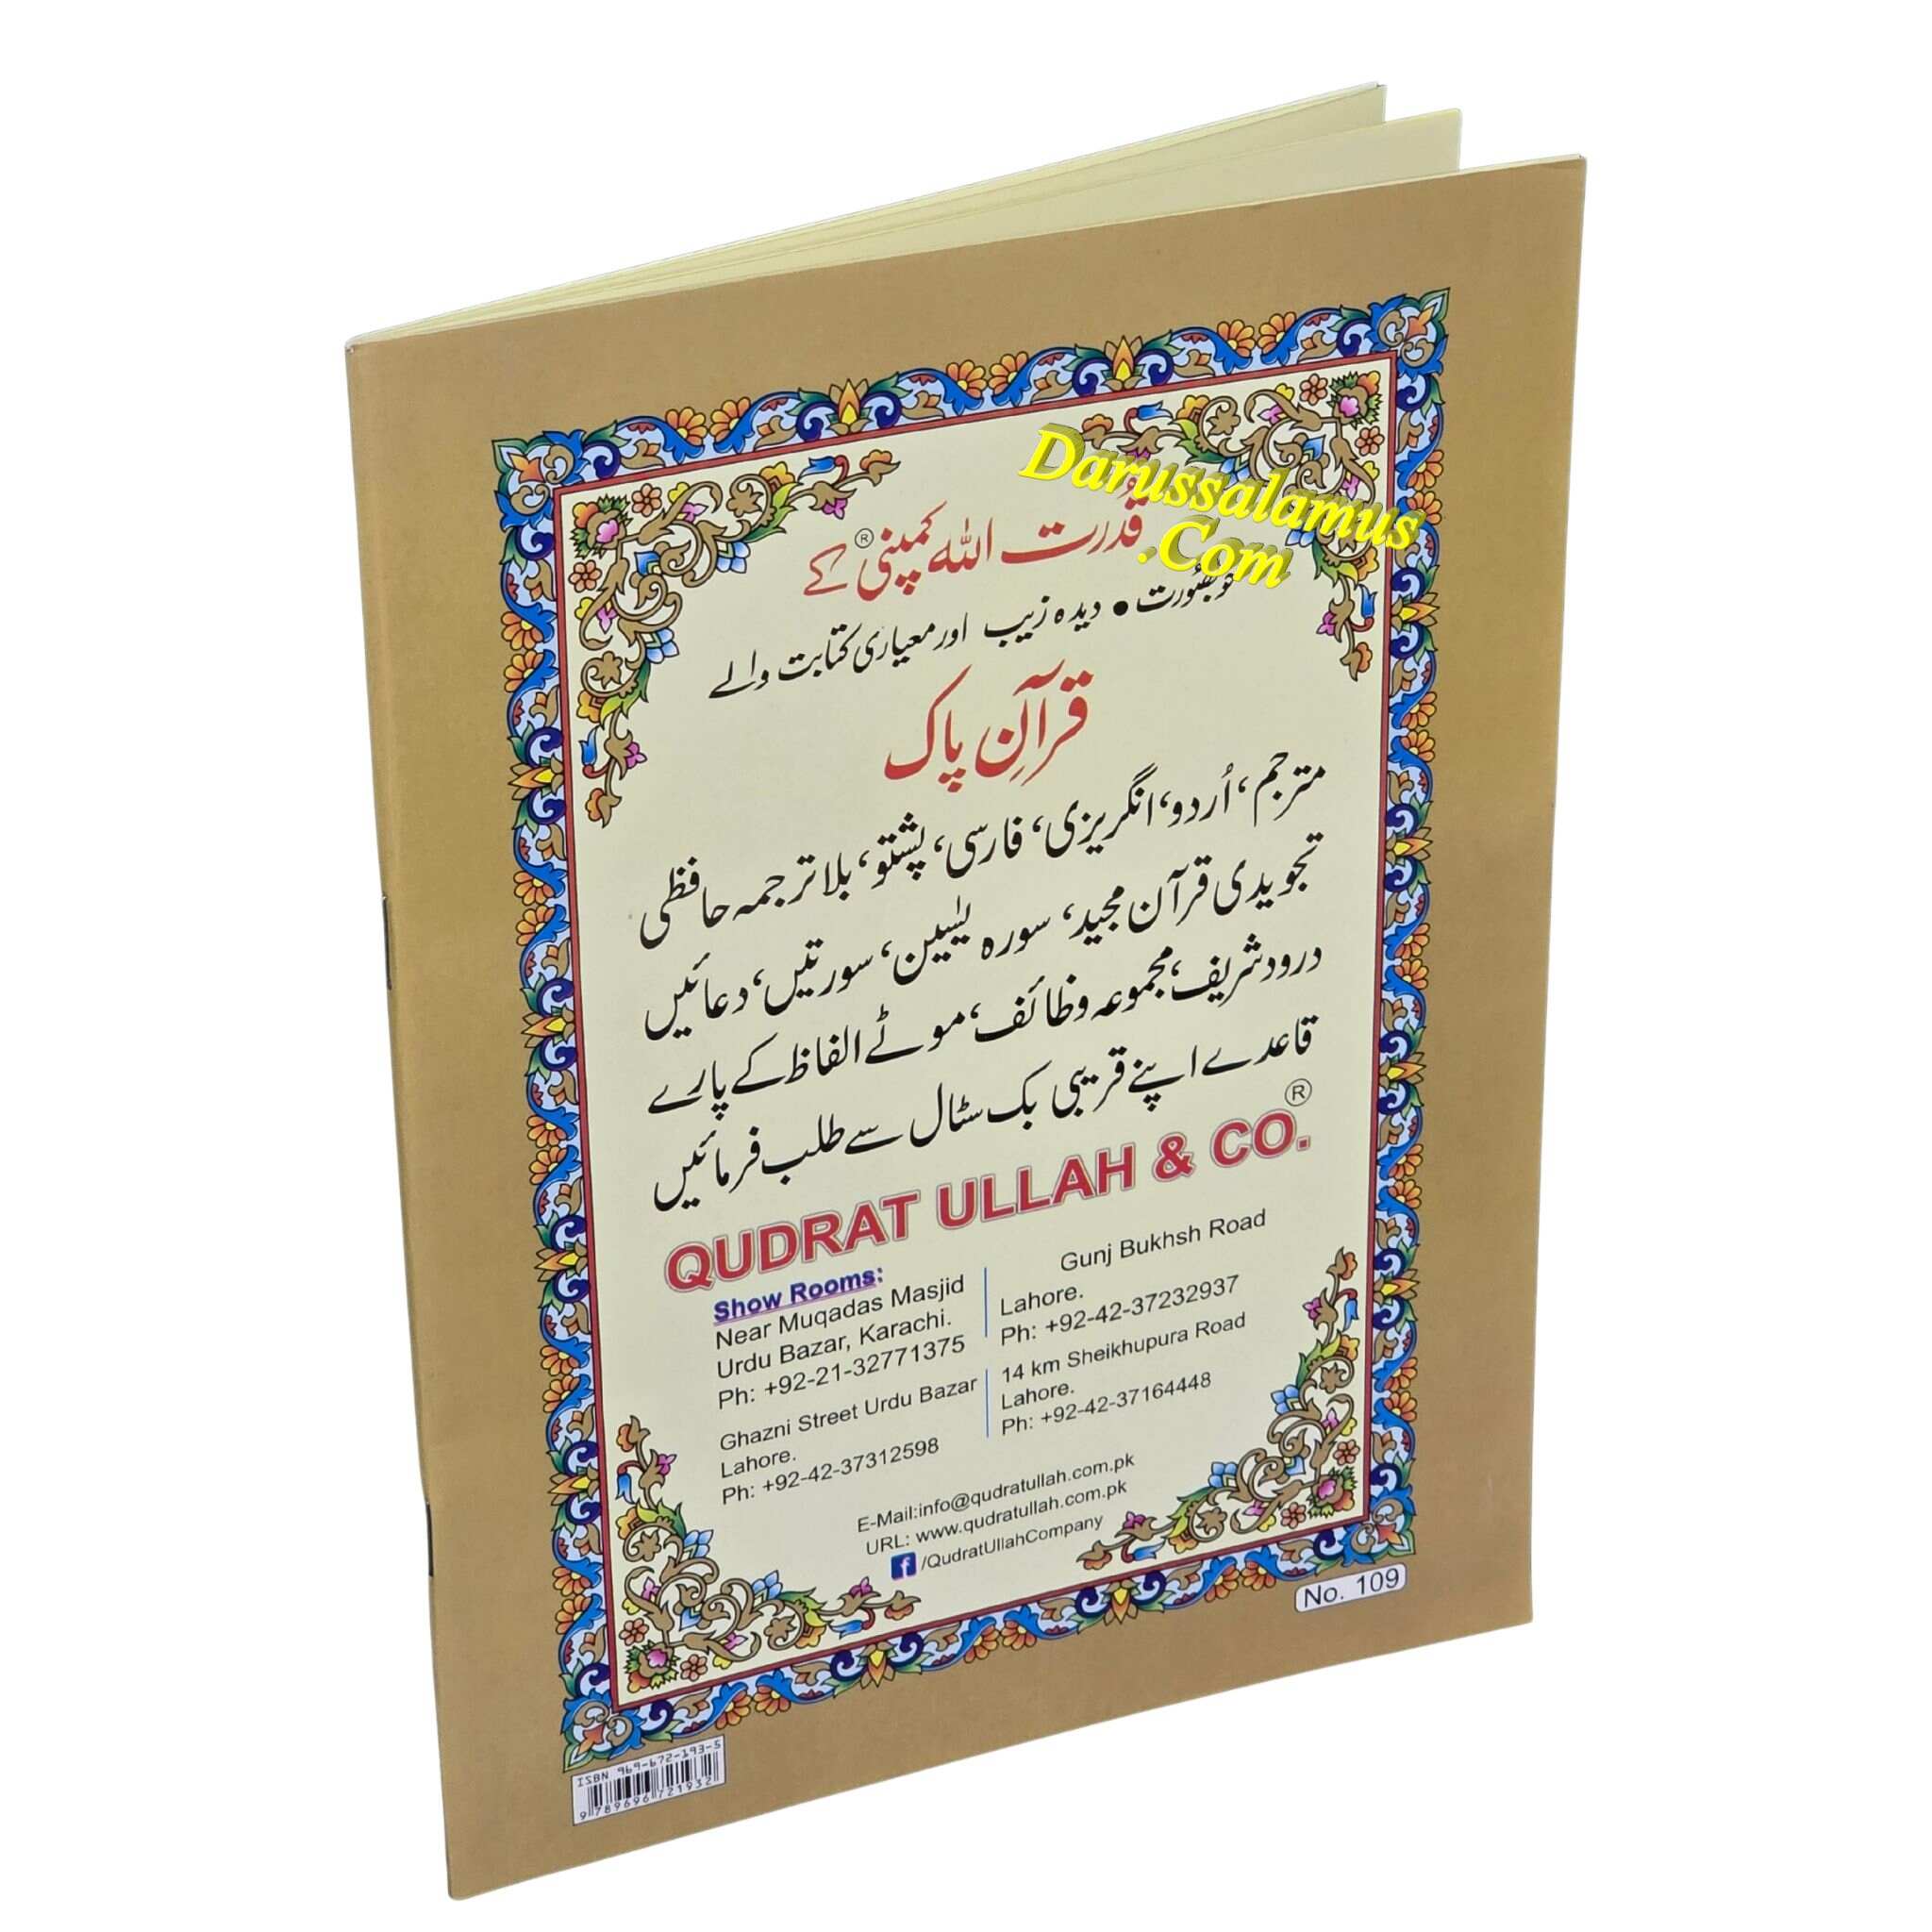 Darussalamus
.Com
قُدرت اللہ کمپنی® کے
خوبصورت • دیدہ زیب اور معیاری کتابت والے
قرآنِ پاک
مترجم، اُردو، انگریزی، فارسی، پشتو، بلاترجمہ حافظی
تجویدی قرآن مجید، سورہ یٰسین، سورتیں، دعائیں
درود شریف، مجموعہ وظائف، موٹے الفاظ کے پارے
قاعدے اپنے قریبی بک سٹال سے طلب فرمائیں
QUDRAT ULLAH & CO.®
Show Rooms:
Near Muqadas Masjid
Urdu Bazar, Karachi.
Ph: +92-21-32771375
Ghazni Street Urdu Bazar
Lahore.
Ph: +92-42-37312598
Gunj Bukhsh Road
Lahore.
Ph: +92-42-37232937
14 km Sheikhupura Road
Lahore.
Ph: +92-42-37164448
E-Mail:info@qudratullah.com.pk
URL: www.qudratullah.com.pk
f /QudratUllahCompany
No. 109
ISBN 969-672-193-5
9 789696 721932